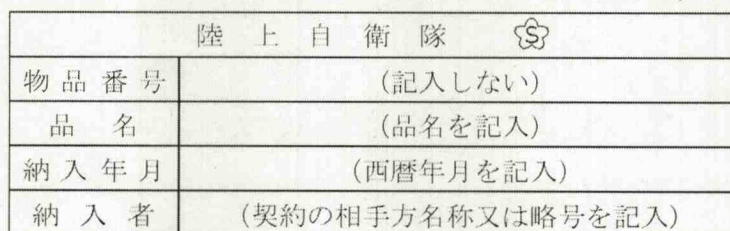 陸上自衛隊 Ⓢ
物品番号 (記入しない)
品名 (品名を記入)
納入年月 (西暦年月を記入)
納入者 (契約の相手方名称又は略号を記入)